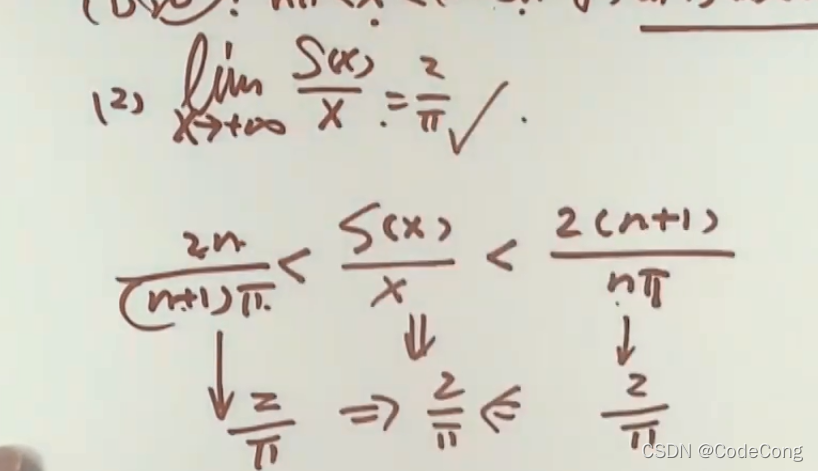 (2) lim x→+∞ S(x)/x = 2/π ✓.
2n/((n+1)π) < S(x)/x < 2(n+1)/(nπ)
↓ ⇓ ↓
2/π ⇒ 2/π ⇐ 2/π
CSDN @CodeCong